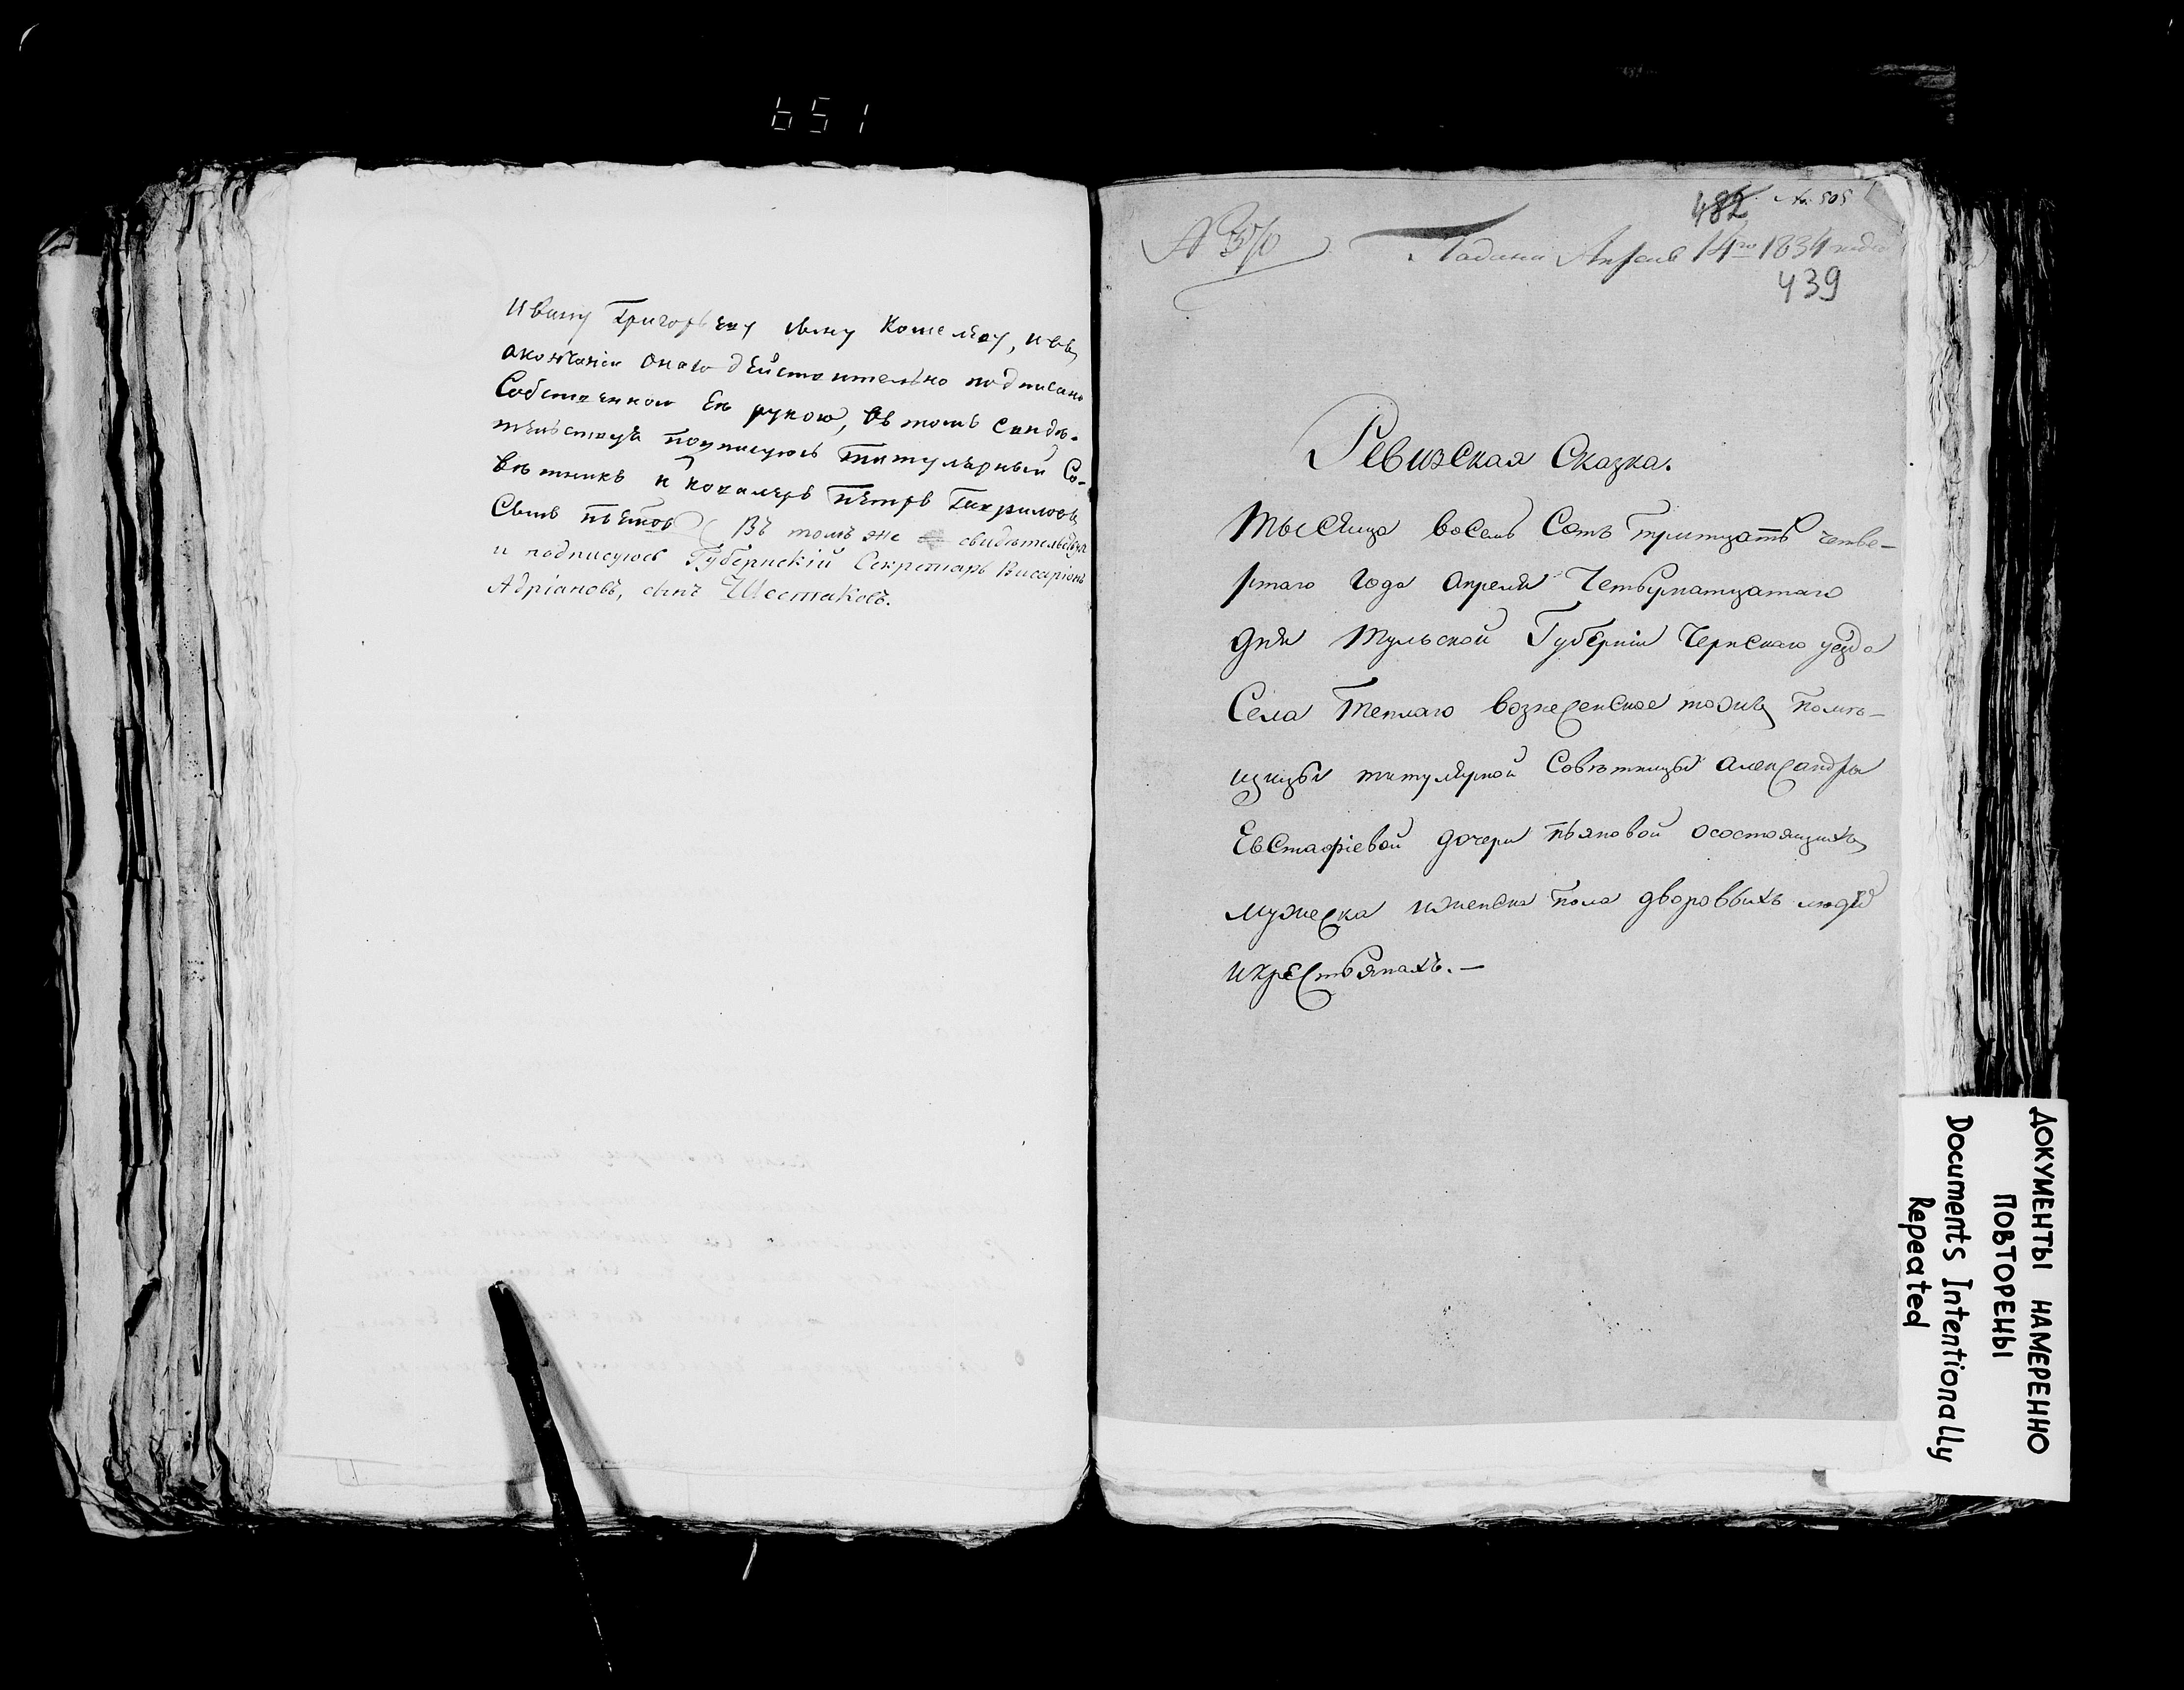 651
Ивану Григорьеву сыну Кошелеву, и въ
окончании онаго действительно подписано
Собственною Ея рукою, въ томъ свидѣ-
тельствуя подписуюсь титулярный Со-
вѣтникъ и Кавалеръ Петръ Гавриловъ
Сынъ Въ томъ же свидѣтельствуя
и подписуюсь Губернскій Секретарь Висаріонъ
Адріановъ, сынъ Шестаковъ.
482 № 505
Подана Апреля 14го 1834 года
439
Ревизская Сказка.
Тысяща восемь Сотъ тритцать четве-
ртаго года апреля Четырнатцатаго
дня Тульской Губерніи Чернскаго уезда
Села Теплаго вознесенское тожъ помѣ-
щицы титулярной Совѣтницы александры
Евстафіевой дочери пьяновой осостоящихъ
мужеска иженска пола дворовыхъ людей
икрестьянахъ.—
ДОКУМЕНТЫ НАМЕРЕННО
ПОВТОРЕНЫ
Documents Intentionally
Repeated